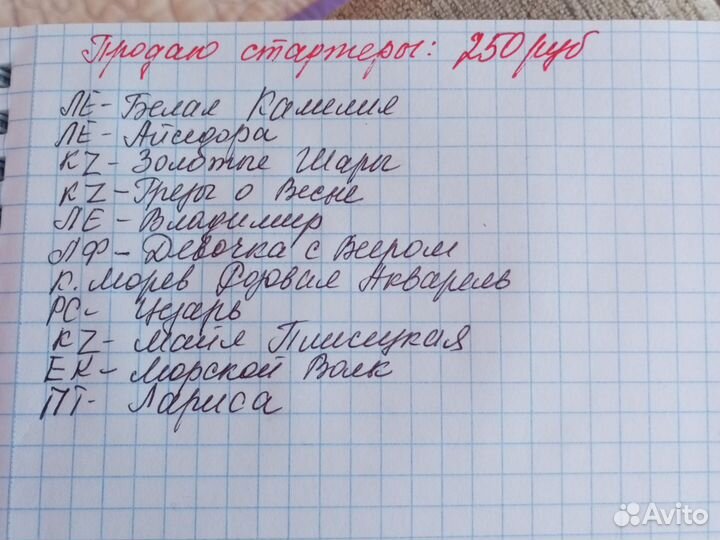 Продаю стартеры: 250 руб
ЛЕ - Белая Камелия
ЛЕ - Айседора
KZ - Золотые Шары
KZ - Грезы о Весне
ЛЕ - Владимир
ЛФ - Девочка с Веером
К. Морев Розовая Акварель
РС - Цезарь
KZ - Майя Плисецкая
ЕК - Морской Волк
ПТ - Лариса
Avito